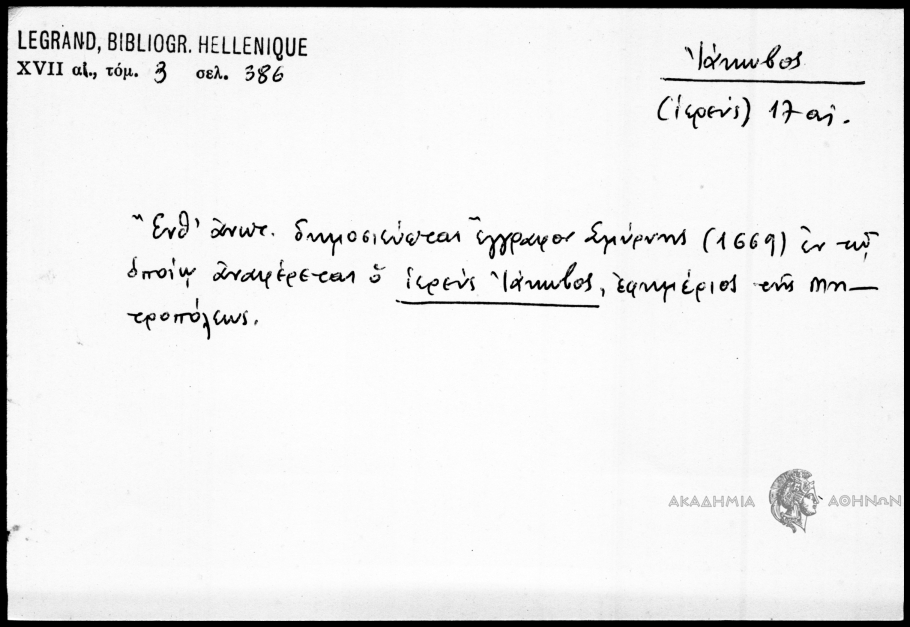 LEGRAND, BIBLIOGR. HELLENIQUE
XVII αἰ., τόμ. 3 σελ. 386
Ἰάκωβος
(ἱερεὺς) 17 αἰ.
Ἔνθ' ἀνωτ. δημοσιεύεται ἔγγραφον Σμύρνης (1669) ἐν τῷ
ὁποίῳ ἀναφέρεται ὁ ἱερεὺς Ἰάκωβος, ἐφημέριος τῆς Μη-
τροπόλεως.
ΑΚΑΔΗΜΙΑ ΑΘΗΝΩΝ